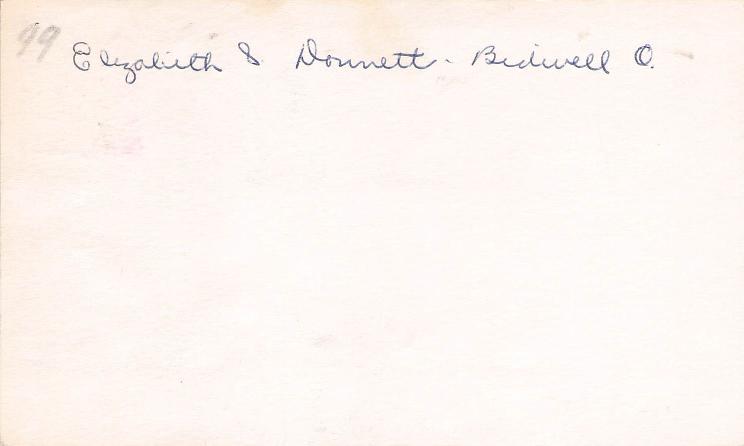 99
Elizabeth S Donnett. Bidwell O.